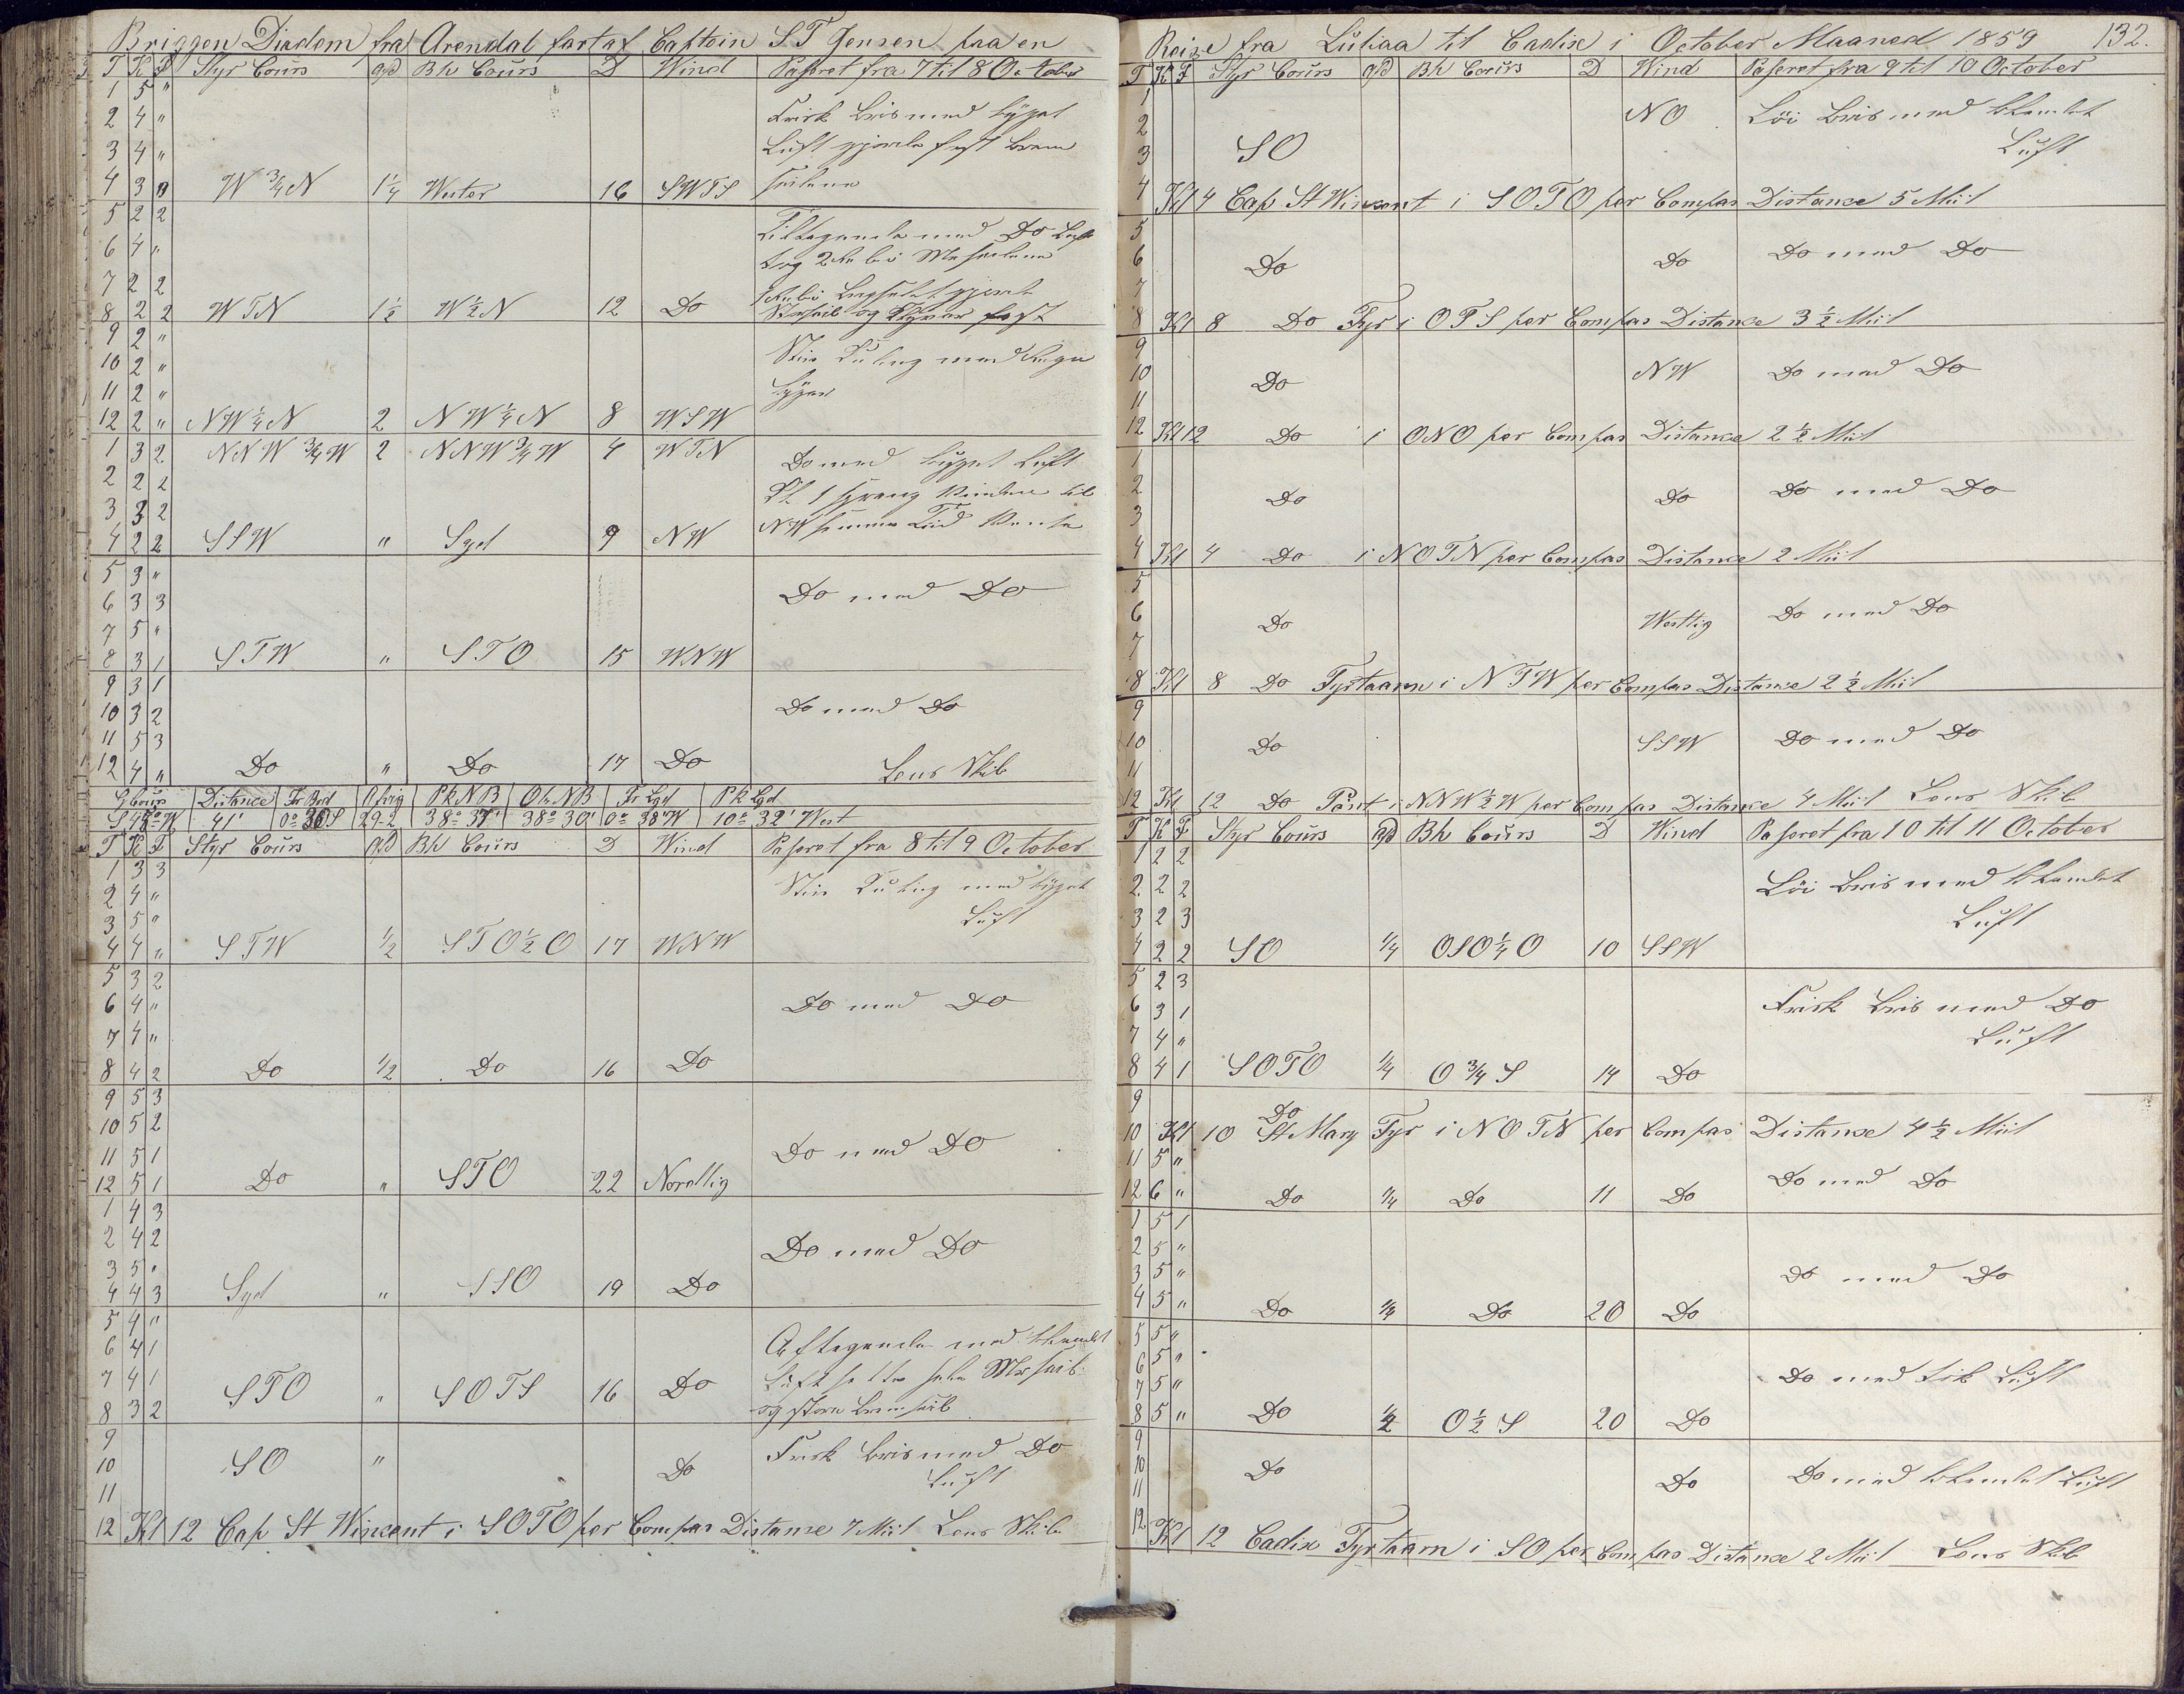 Briggen Diadem fra Arendal fört af Captein S.T Jensen paa en
T K F Styr Cours afd Bh Cours D Wind Paseret fra 7 til 8 October
1 5 "
2 4 " Frisk Bris med bygat
3 4 " Luft gjorde fast Bram
4 3 " W ¾ N 1¼ Wester 16 SWTS seilene
5 2 2 Tiltagende med Do Luft
6 4 " tog 2 Reb i Merseilene
7 2 2
8 2 2 WTN 1½ W½N 12 Do
9 2 "
10 2 " Stiv Kuling med Regn
11 2 " byger
12 2 " NW¼N 2 NW¼N 8 WSW
1 3 2 NNW ¾ W 2 NNW¾W 4 WTN Do med bygat Luft
2 2 2 Kl 1 sprang Vinden til
3 3 2
4 2 2 SSW " Syd 9 NW
5 3 "
6 3 3 Do med Do
7 5 "
8 3 1 STW " STO 15 WNW
9 3 1
10 3 2 Do med Do
11 5 3
12 4 " Do " Do 17 Do Lens Skib
G Cours Distance Fr Bred Afvig Pk NB Ob NB Fr Lgd Pk Lgd
S 48° W 41' 0° 30 S 29-2 38° 37' 38° 30' 0° 38' W 10° 32' West
T K F Styr Cours afd Bh Cours D Wind Paseret fra 8 til 9 October
1 3 3 Stiv Kuling med bygat
2 4 "
3 5 " Luft
4 4 " STW ½ STO½O 17 WNW
5 3 2
6 4 " Do med Do
7 4 "
8 4 2 Do ½ Do 16 Do
9 5 3
10 5 2
11 5 1 Do med Do
12 5 1 Do " STO 22 Nordlig
1 4 3
2 4 2 Do med Do
3 5 "
4 4 3 Syd " SSO 19 Do
5 4 "
6 4 1 Aftagende med skamlet
7 4 1 STO " SOTS 16 Do Luft
8 3 2 og store Bramseil
9 Frisk Bris med Do
10 SO " Do Luft
11
12 Kl 12 Cap St Wincent i SOTO per Compas Distanse 7 Miil Lens Skib
Reise fra Luliaa til Cadix i October Maaned 1859 132.
T K F Styr Cours afd Bh Cours D Wind Paseret fra 9 til 10 October
1 NO Löi Bris med skamlet
2
3 SO Luft
4 Kl 4 Cap St Wincent i SOTO per Compas Distance 5 Miil
5
6 Do Do Do med Do
7
8 Kl 8 Do Fyr i OTS per Compas Distance 3½ Miil
9
10 Do NW Do med Do
11
12 Kl 12 Do i ONO per Compas Distance 2½ Miil
1
2 Do Do Do med Do
3
4 Kl 4 Do i NOTN per Compas Distance 2 Miil
5
6 Do Westlig Do med Do
7
8 Kl 8 Do Fyrtaarn i NTW per Compas Distance 2½ Miil
9
10 Do SSW Do med Do
11
12 Kl 12 Do Pünt i NNW½W per Compas Distance 4 Miil Lens Skib
T K F Styr Cours afd Bh Cours D Wind Paseret fra 10 til 11 October
1 2 2
2 2 2 Löi Bris med skamlet
3 2 3 Luft
4 2 2 SO ¼ OSO¼O 10 SSW
5 2 3
6 3 1 Frisk Bris med Do
7 4 " Luft
8 4 1 SOTO ¼ O¾S 14 Do
9 Do
10 Kl 10 St Mary Fyr i NOTN per Compas Distance 4½ Miil
11 5 "
12 6 " Do ¼ Do 11 Do Do med Do
1 5 1
2 5 "
3 5 " Do med Do
4 5 " Do ¼ Do 20 Do
5 5 "
6 5 "
7 5 " Do med tik Luft
8 5 " Do ½ O½S 20 Do
9
10 Do Do Do med skamlet Luft
11
12 Kl 12 Cadix Fyrtaarn i SO per Compas Distance 2 Miil Lens Skib